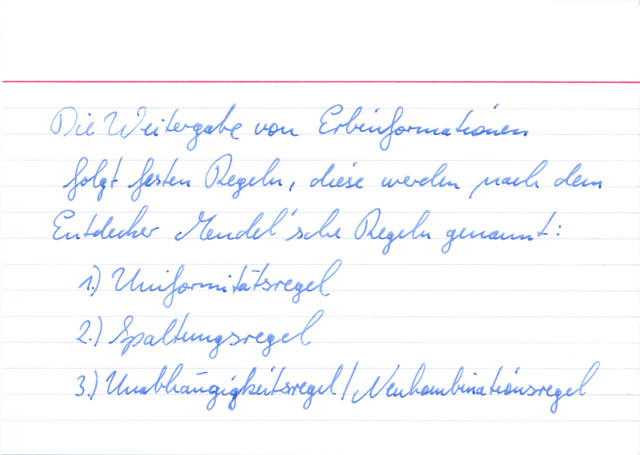 Die Weitergabe von Erbinformationen
folgt festen Regeln, diese werden nach dem
Entdecker Mendel'sche Regeln genannt:
1.) Uniformitätsregel
2.) Spaltungsregel
3.) Unabhängigkeitsregel/Neukombinationsregel